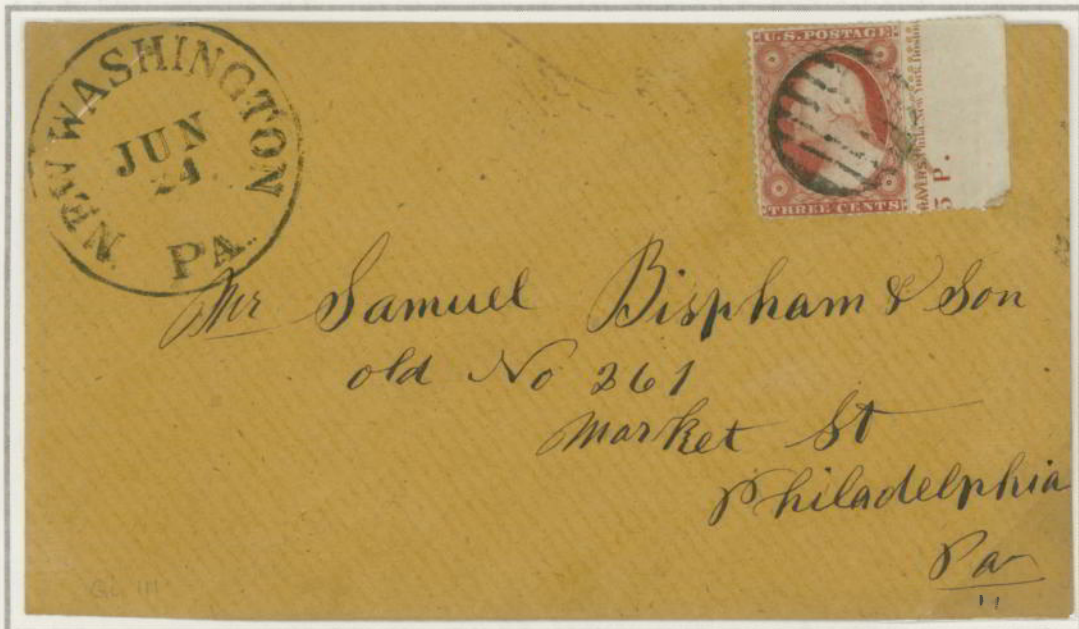 NEW WASHINGTON
JUN
24
PA.
U.S. POSTAGE
THREE CENTS
5 P.
Mr Samuel Bispham & Son
old No 261
Market St
Philadelphia
Pa